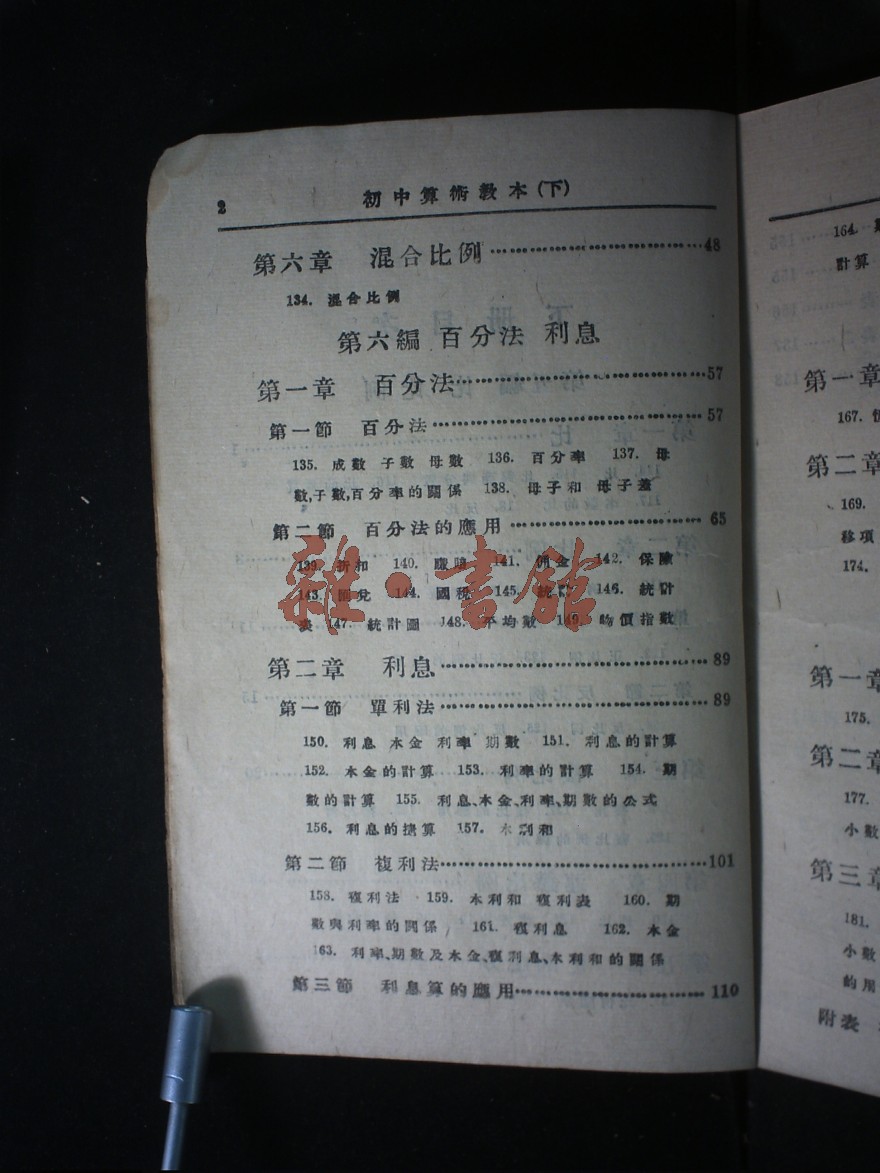 2 初中算術教本(下)
第六章 混合比例 48
134. 混合比例
第六編 百分法 利息
第一章 百分法 57
第一節 百分法 57
135. 成數 子數 母數 136. 百分率 137. 母
數,子數,百分率的關係 138. 母子和 母子差
第二節 百分法的應用 65
139. 折扣 140. 141. 佣金 142. 保險
143. 匯兌 144. 國稅 145. 統計 146. 統計
表 147. 統計圖 148. 平均數 149. 物價指數
第二章 利息 89
第一節 單利法 89
150. 利息 本金 利率 期數 151. 利息的計算
152. 本金的計算 153. 利率的計算 154. 期
數的計算 155. 利息、本金、利率、期數的公式
156. 利息的捷算 157. 本利和
第二節 複利法 101
158. 複利法 159. 本利和 複利表 160. 期
數與利率的関係 161. 複利息 162. 本金
163. 利率、期數及本金、複利息、本利和的關係
第三節 利息算的應用 110
雜·書館
164.
計算
第一章
167.
第二章
169.
移項
174.
第一章
175.
第二章
177.
小數
第三章
181.
小數
的用
附表